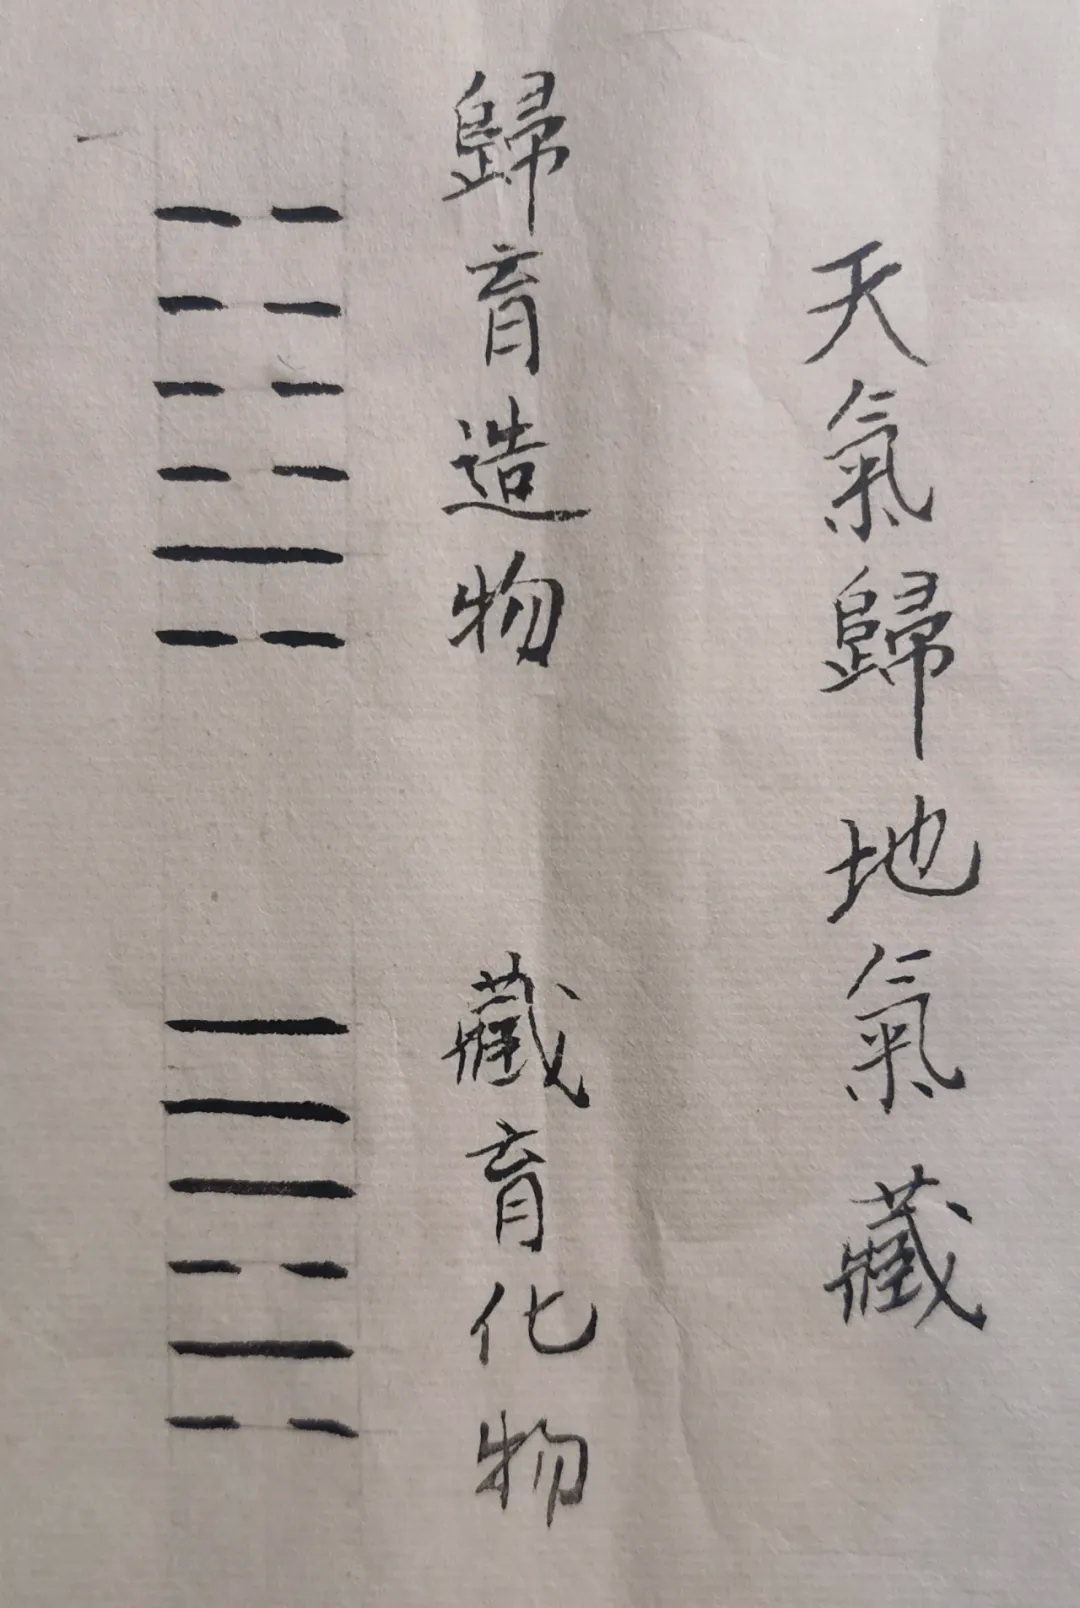 天氣歸地氣藏
歸育造物
藏育化物